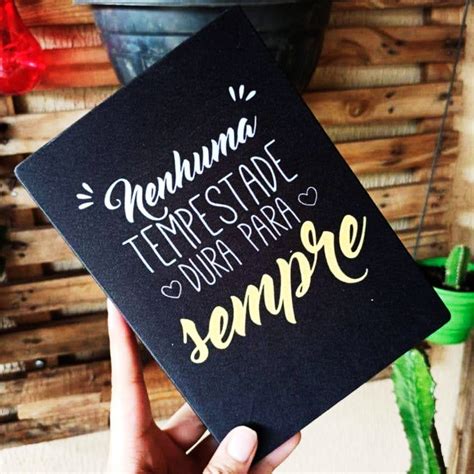 Nenhuma
TEMPESTADE
DURA PARA
sempre